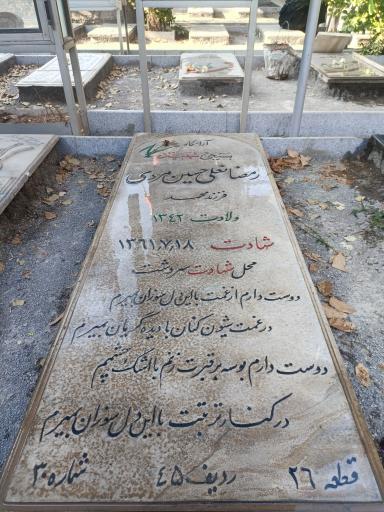 آرامگاه
بسیجی شهید
رمضانعلی حسین مردی
فرزند محمد
ولادت ۱۳۴۲
شهادت ۱۳۶۱/۷/۱۸
محل شهادت سردشت
دوست دارم از غمت با این دل سوزان بمیرم
در غمت شیون کنان با دیده گریان بمیرم
دوست دارم بوسه بر قبرت زنم با اشک چشمم
در کنار تربتت با این دل سوزان بمیرم
قطعه ۲۶ ردیف ۴۵ شماره ۳۰